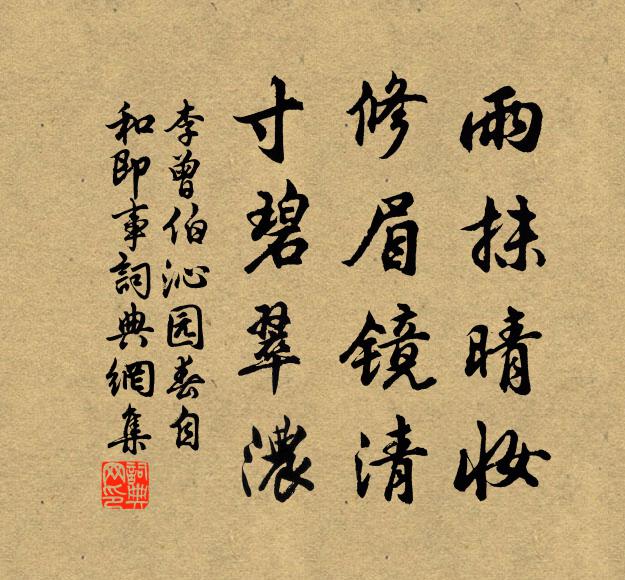 雨抹晴妆
修眉镜清
寸碧翠濃
李曾伯沁园春自
和即事詞典網集
詞典
网印